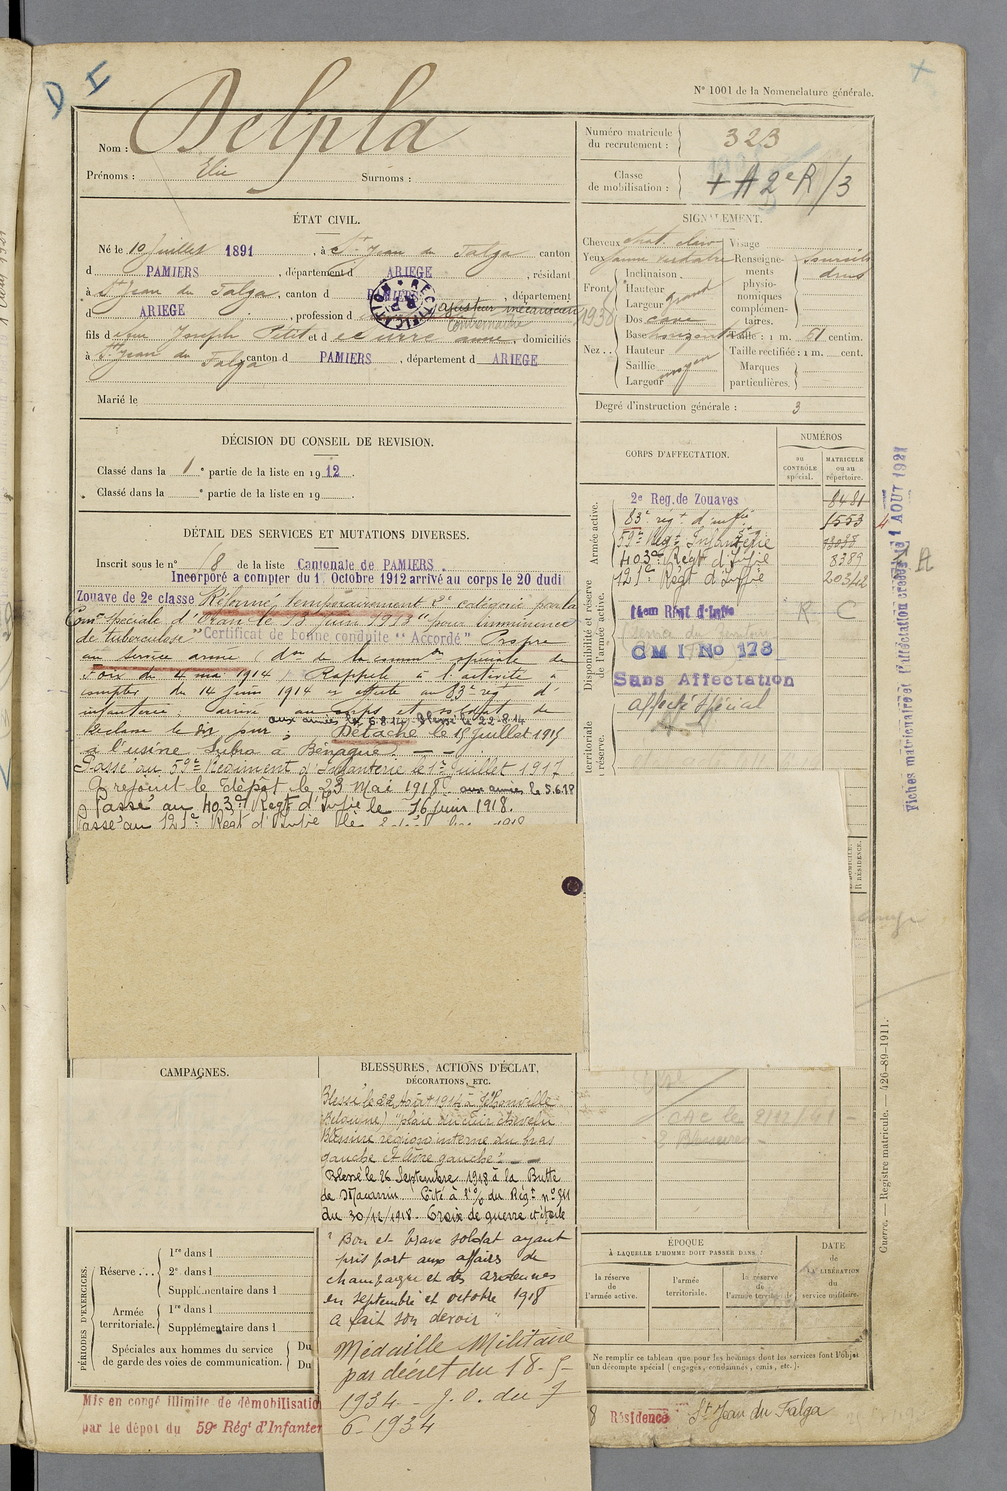 D I
N° 1001 de la Nomenclature générale.
Nom : Delpla
Prénoms : Elie Surnoms :
Numéro matricule du recrutement : 323
Classe de mobilisation : + A 2e R/3
ÉTAT CIVIL.
Né le 10 Juillet 1891, à St Jean du Falga canton
d PAMIERS, département d ARIEGE, résidant
à St Jean du Falga, canton d PAMIERS, département
d ARIEGE, profession d ajusteur mécanicien
RECTIFICATION
fils d Joseph Petit et d anne, domiciliés
à St Jean du Falga canton d PAMIERS, département d ARIEGE
Marié le
SIGNALEMENT.
Cheveux chat. clair Visage
Yeux jaune verdatre Renseignements physionomiques complémentaires. Sourcils drus
Front Inclinaison
Hauteur
Largeur grand
Nez Dos cave
Base horizontale Taille : 1 m. 61 centim.
Hauteur Taille rectifiée : 1 m. cent.
Saillie Marques
Largeur moyen particulières.
1938
Degré d'instruction générale : 3
DÉCISION DU CONSEIL DE REVISION.
Classé dans la 1e partie de la liste en 1912.
Classé dans la e partie de la liste en 19 .
DÉTAIL DES SERVICES ET MUTATIONS DIVERSES.
Inscrit sous le n° 18 de la liste Cantonale de PAMIERS
Incorporé a compter du 1 Octobre 1912 arrivé au corps le 20 dudi
Zouave de 2e classe Réformé temporairement 2e catégorie par la
Con spéciale d'Oran le 13 Juin 1913 "pour imminence
de tuberculose "Certificat de bonne conduite "Accordé" Propre
au service armé (don de la common spéciale de
Foix du 4 mai 1914) Rappelé à l'activité à
compter du 14 juin 1914 et affecté au 83e régt d'
infanterie, arrivé au corps et soldat de
2e classe le dit jour; aux armées le 6.8.14 Blessé le 22-8-14
Détaché le 15 Juillet 1915
à l'usine à Bénague.
Passé au 59e Régiment d'Infanterie le 1er Juillet 1917
A rejoint le Dépôt le 23 Mai 1918. aux armées le 5.6.18
Passé au 403e Régt d'Infie le 16 juin 1918.
Passé au 121e Régt d'Infie le
CORPS D'AFFECTATION.
NUMÉROS
au CONTRÔLE spécial.
MATRICULE ou au répertoire.
Armée active.
2e Reg. de Zouaves 8481
83e régt d'infie 1553
59e Régt Infanterie
403e Régt d'Infie 8389
121e Régt d'Infie 20342
Disponibilité et réserve de l'armée active.
14em Régt d'Inf R C
CMI No 178
Sans Affectation
Affecté Spécial
territoriale
réserve.
Fiches matriculaire et d'affectation créées le 1 AOUT 1921
A
CAMPAGNES.
BLESSURES, ACTIONS D'ÉCLAT,
DÉCORATIONS, ETC.
Blessé le 22 Août 1914 à
(Belgique) "plaie du cuir chevelu
Blessure région interne du bras
gauche et gauche".
Blessé le 26 Septembre 1918 à la Butte
de Cité à l'o/ du Régt n° 811
du 30/12/1918. Croix de guerre et étoile
" Bon et brave soldat ayant
pris part aux affaires de
champagne et des ardennes
en septembre et octobre 1918
a fait son devoir "
Médaille Militaire
par décret du 18-5-
1934 - J.O. du 7
6-1934
CAC le 2/12/41
2 Blessures
ÉPOQUE
À LAQUELLE L'HOMME DOIT PASSER DANS :
la réserve de l'armée active.
l'armée territoriale.
la réserve de l'armée territle
DATE de LA LIBÉRATION du service militaire.
PÉRIODES D'EXERCICES.
Réserve. 1re dans l
2e dans l
Supplémentaire dans l
Armée territoriale. 1re dans l
Supplémentaire dans l
Spéciales aux hommes du service de garde des voies de communication. Du
Du
Ne remplir ce tableau que pour les hommes dont les services font l'objet
d'un décompte spécial (engagés, condamnés, omis, etc.).
Guerre. — Registre matricule. — 426-89-1911.
Mis en congé illimité de démobilisatio
par le dépôt du 59e Régt d'Infanter
8 Résidence St Jean du Falga